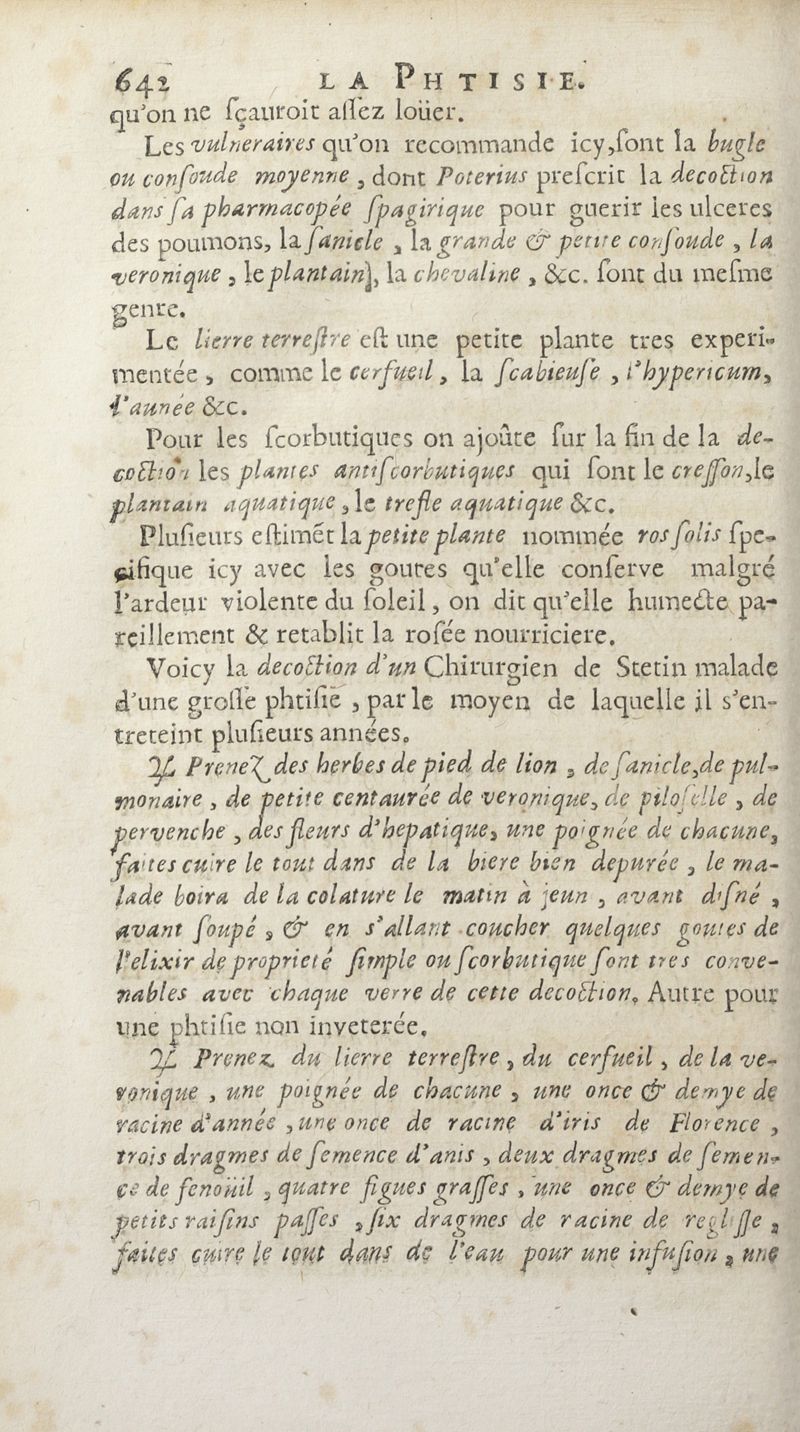 642 LA PHTISIE.
qu'on ne ſçauroit aſſez loüer.
Les vulneraires qu'on recommande icy,ſont la bugle
ou conſoude moyenne, dont Poterius preſcrit la decoction
dans ſa pharmacopée ſpagirique pour guerir les ulceres
des poumons, la ſanicle, la grande & petite conſoude, la
veronique, le plantain), la chevaline, &c. ſont du meſme
genre.
Le lierre terreſtre eſt une petite plante tres experi-
mentée, comme le cerfueil, la ſcabieuſe, l'hypericum,
l'aunée &c.
Pour les ſcorbutiques on ajoûte ſur la fin de la de-
coction les plantes antiſcorbutiques qui ſont le creſſon,le
plantain aquatique, le trefle aquatique &c.
Pluſieurs eſtimēt la petite plante nommée ros ſolis ſpe-
cifique icy avec les goutes qu'elle conſerve malgré
l'ardeur violente du ſoleil, on dit qu'elle humecte pa-
reillement & retablit la roſée nourriciere.
Voicy la decoction d'un Chirurgien de Stetin malade
d'une groſſe phtiſie, par le moyen de laquelle il s'en-
treteint pluſieurs années.
♃ Prenez des herbes de pied de lion, de ſanicle,de pul-
monaire, de petite centaurée de veronique, de piloſelle, de
pervenche, des fleurs d'hepatique, une poignée de chacune,
faites cuire le tout dans de la biere bien depurée, le ma-
lade boira de la colature le matin à jeun, avant diſné,
avant ſoupé, & en s'allant coucher quelques goutes de
l'elixir de proprieté ſimple ou ſcorbutique ſont tres conve-
nables avec chaque verre de cette decoction. Autre pour
une phtiſie non inveterée.
♃ Prenez du lierre terreſtre, du cerfueil, de la ve-
ronique, une poignée de chacune, une once & demye de
racine d'année, une once de racine d'iris de Florence,
trois dragmes de ſemence d'anis, deux dragmes de ſemen-
ce de fenoüil, quatre figues graſſes, une once & demye de
petits raiſins paſſes, ſix dragmes de racine de regliſſe,
faites cuire le tout dans de l'eau pour une infuſion, une